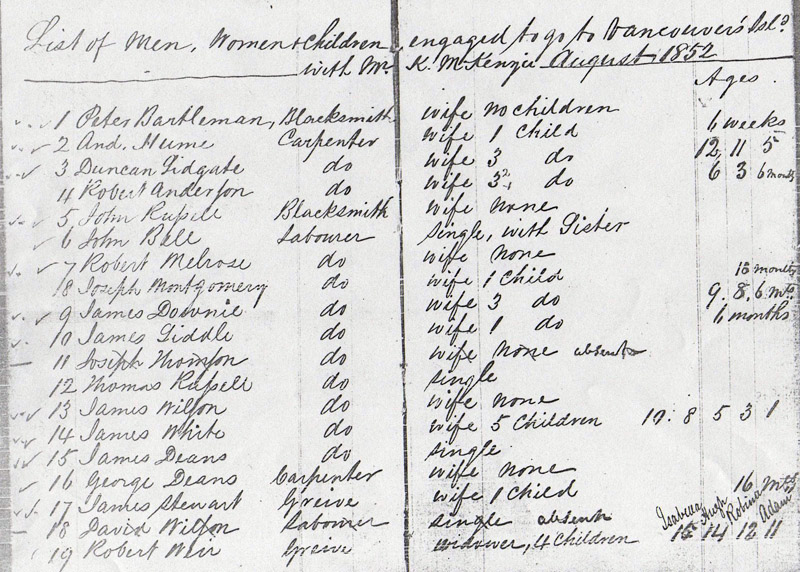 List of Men, Women & Children engaged to go to Vancouver's Isld
with Mr K. McKenzie August 1852
Ages
1 Peter Bartleman, Blacksmith wife no children
2 And. Hume Carpenter wife 1 Child 6 weeks
3 Duncan Lidgate do wife 3 do 12 11 5
4 Robert Anderson do wife 3 2 do 6 3 6 months
5 John Russell Blacksmith wife none
6 John Bell Labourer single, with Sister
7 Robert Melrose do wife none
8 Joseph Montgomery do wife 1 Child 18 months
9 James Downie do wife 3 do 9. 8. 6 mts
10 James Liddle do wife 1 do 6 months
11 Joseph Thomson do wife none absent
12 Thomas Russell do single
13 James Wilson do wife none
14 James White do wife 5 Children 8 5 3 1
15 James Deans do single
16 George Deans Carpenter wife none
17 James Stewart Greive wife 1 Child 16 mts
18 David Wilson Labourer single absent Isabella Hugh Robina Adam
19 Robert Weir Greive widower, 4 Children 15 14 12 11